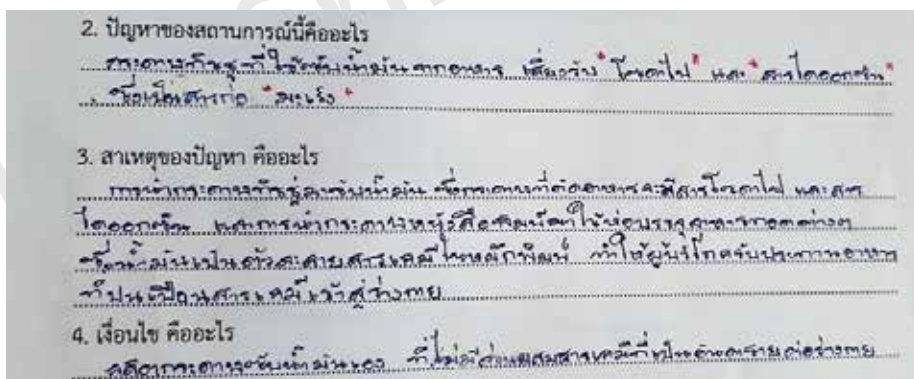 2. ปัญหาของสถานการณ์นี้คืออะไร
กระดาษทิชชูที่ใช้ซับน้ำมันจากอาหาร เสี่ยงรับ "โซดาไฟ" และ "สารไดออกซิน"
ซึ่งเป็นสารก่อ "มะเร็ง"
3. สาเหตุของปัญหา คืออะไร
การนำกระดาษทิชชูมาซับน้ำมัน ซึ่งกระดาษที่ติดอาหารจะมีสารโซดาไฟ และสาร
ไดออกซิน และการนำกระดาษหนังสือพิมพ์มาใช้ห่อบรรจุอาหารทอดต่างๆ
ซึ่งน้ำมันเป็นตัวละลายสารเคมีในหมึกพิมพ์ ทำให้ผู้บริโภครับประทานอาหาร
ที่ปนเปื้อนสารเคมีเข้าสู่ร่างกาย
4. เงื่อนไข คืออะไร
ผลิตกระดาษซับน้ำมันเอง ที่ไม่มีส่วนผสมสารเคมีที่เป็นอันตรายต่อร่างกาย